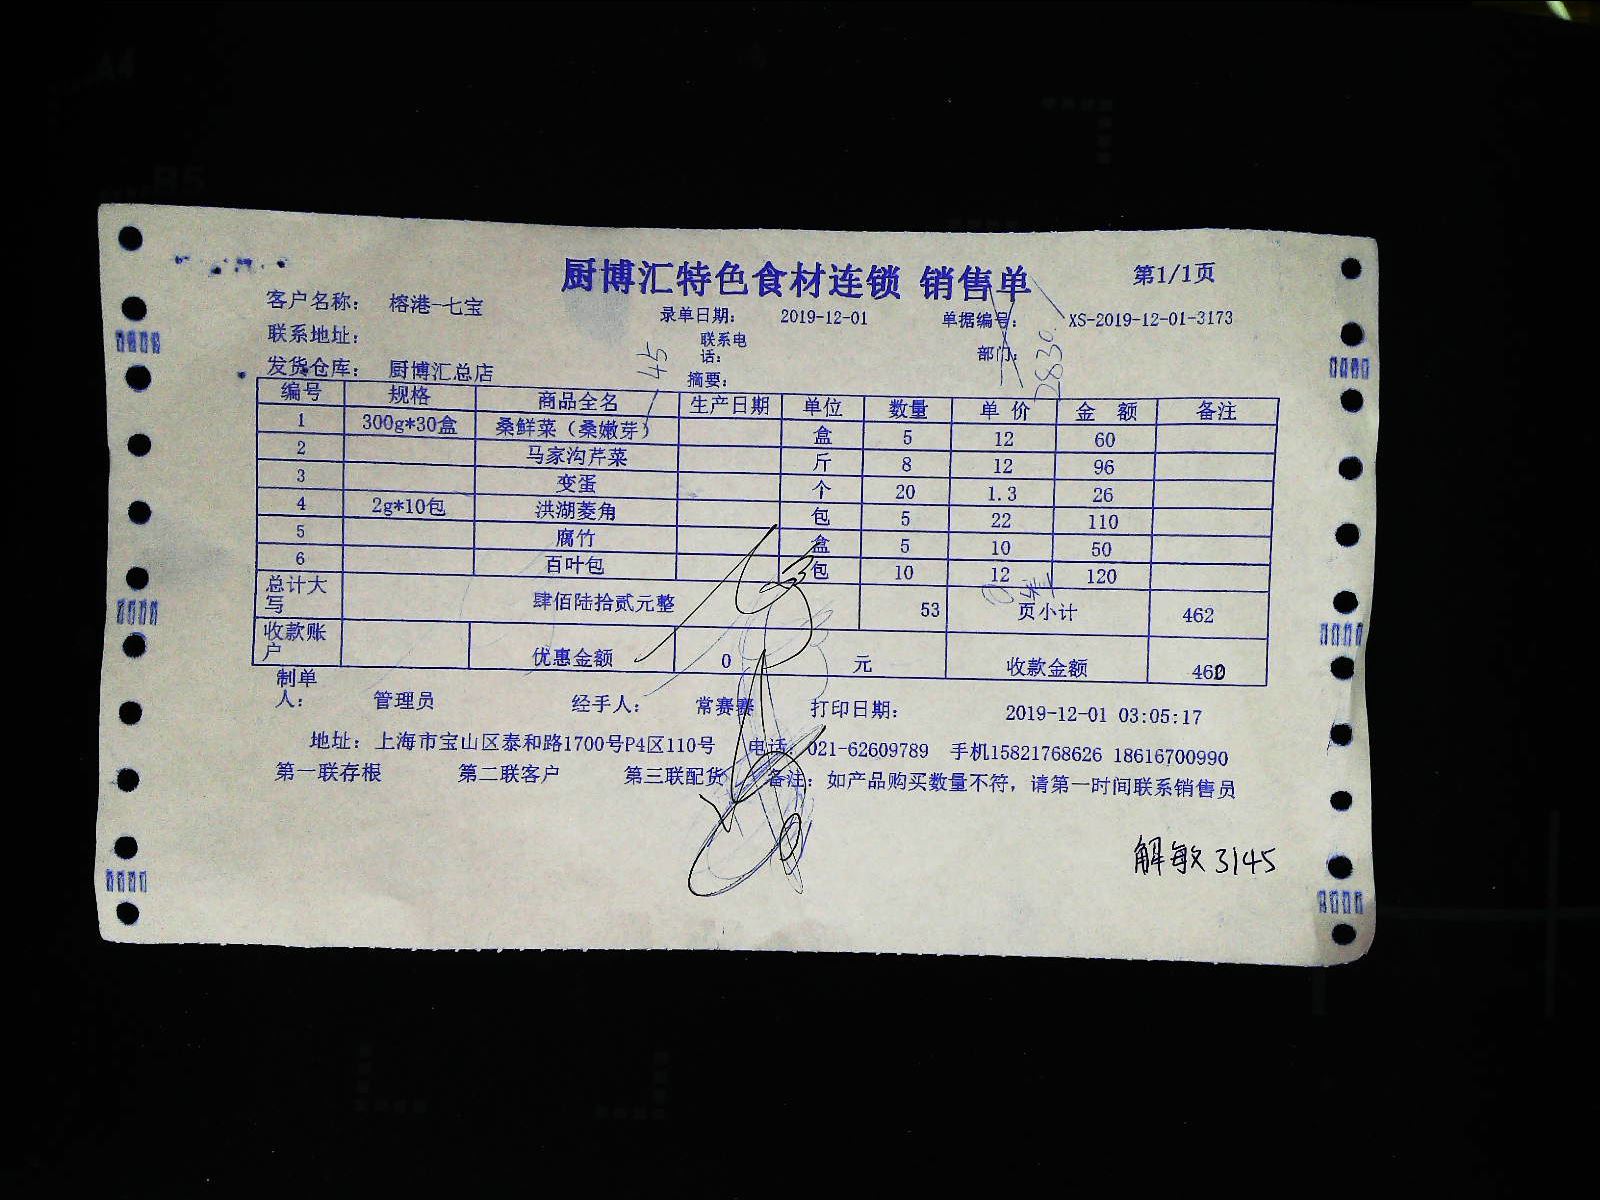 厨博汇特色食材连锁 销售单 第1/1页
客户名称: 榕港-七宝 录单日期: 2019-12-01 单据编号: XS-2019-12-01-3173
联系地址: 联系电话: 部门:
发货仓库: 厨博汇总店 摘要:
45
2830
编号 规格 商品全名 生产日期 单位 数量 单价 金额 备注
1 300g*30盒 桑鲜菜(桑嫩芽) 盒 5 12 60
2 马家沟芹菜 斤 8 12 96
3 变蛋 个 20 1.3 26
4 2g*10包 洪湖菱角 包 5 22 110
5 腐竹 盒 5 10 50
6 百叶包 包 10 12 120
总计大写 肆佰陆拾贰元整 53 页小计 462
收款账户 优惠金额 0 元 收款金额 460
制单人: 管理员 经手人: 常赛赛 打印日期: 2019-12-01 03:05:17
地址: 上海市宝山区泰和路1700号P4区110号 电话: 021-62609789 手机15821768626 18616700990
第一联存根 第二联客户 第三联配货 备注: 如产品购买数量不符, 请第一时间联系销售员
解敏 3145